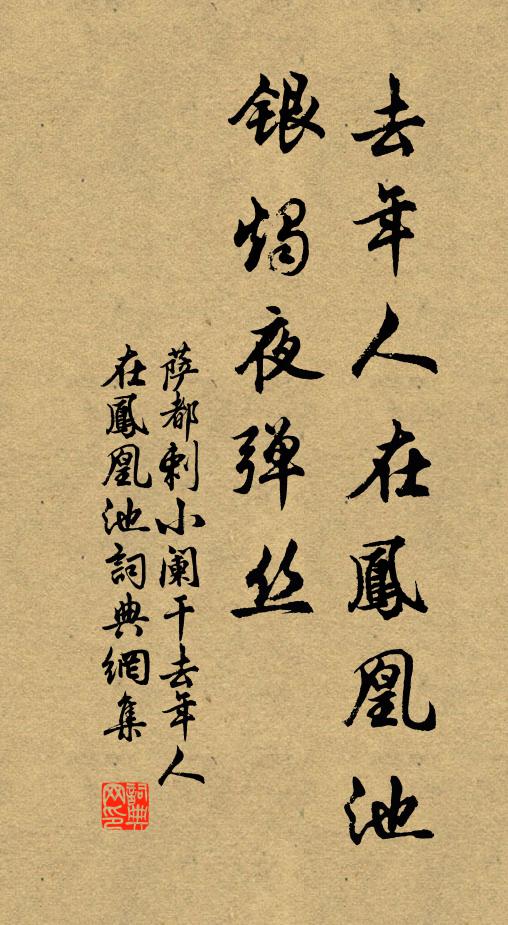 去年人在鳳凰池
银烛夜弹丝
萨都剌小阑干去年人
在鳳凰池詞典網集
詞典
网印